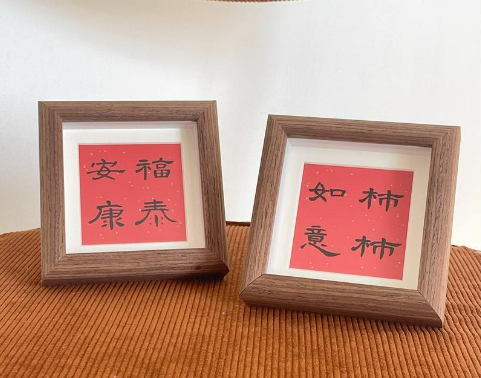 福泰
安康
柿柿
如意